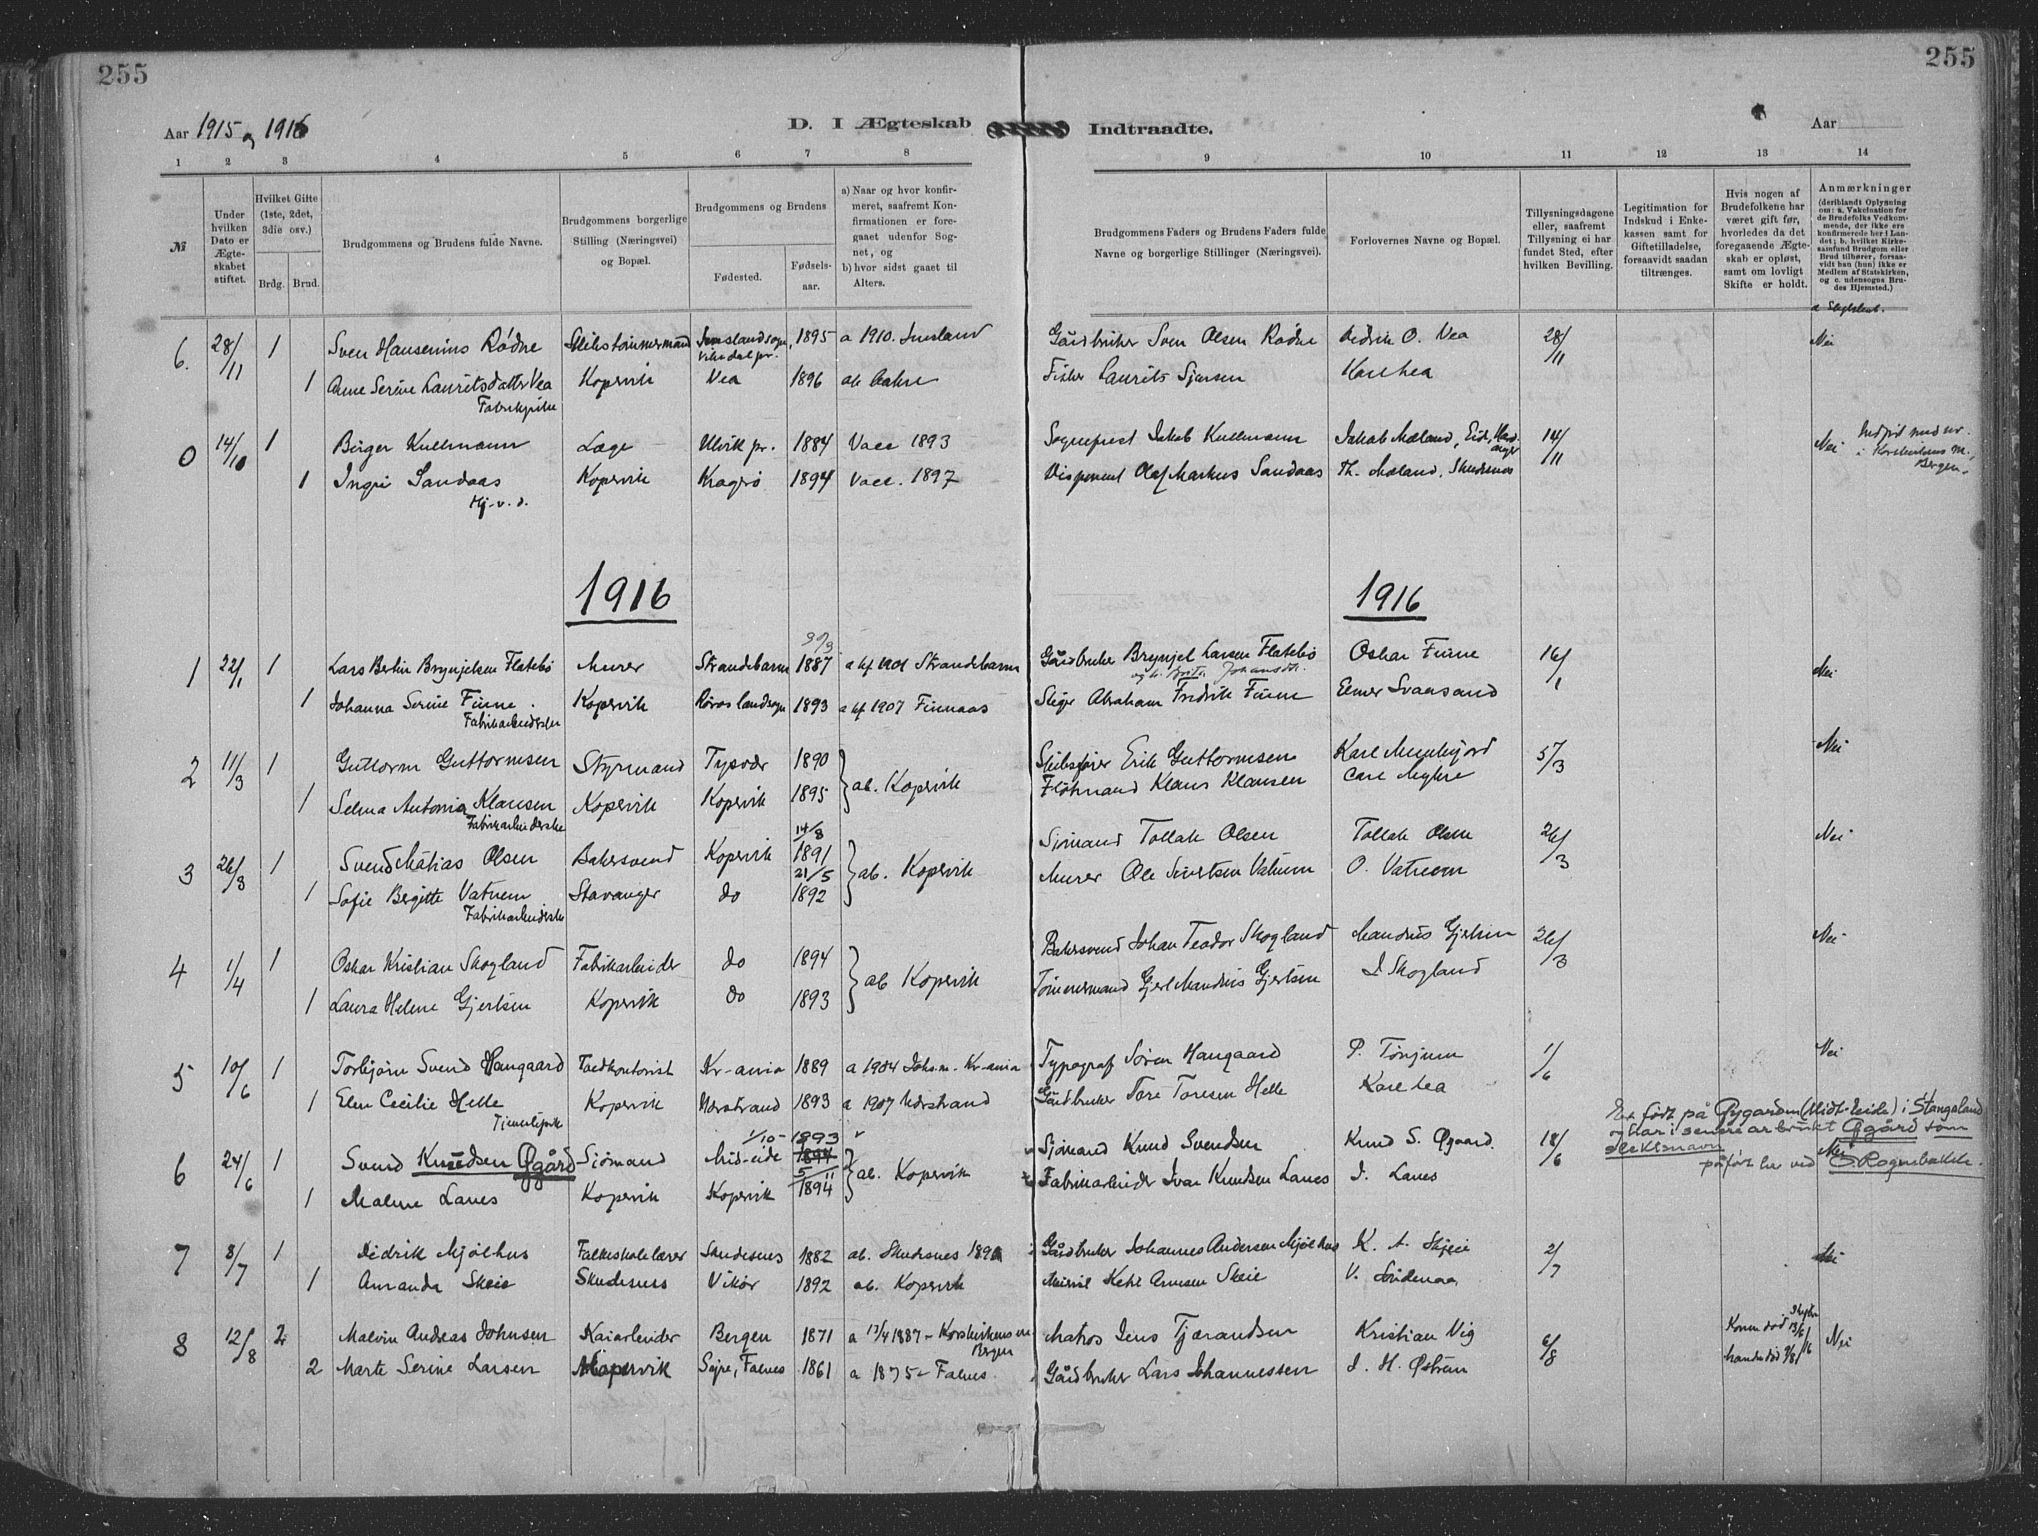 255
255
Aar 1915 og 1916
D. I Ægteskab
Indtraadte.
Aar
1 2 3 4 5 6 7 8
9 10 11 12 13 14
№
Under hvilken Dato er Ægteskabet stiftet.
Hvilket Gifte (1ste, 2det, 3die osv.)
Brdg. Brud.
Brudgommens og Brudens fulde Navne.
Brudgommens borgerlige Stilling (Næringsvei) og Bopæl.
Brudgommens og Brudens
Fødested.
Fødselsaar.
a) Naar og hvor konfirmeret, saafremt Konfirmationen er foregaaet udenfor Sognet, og
b) hvor sidst gaaet til Alters.
Brudgommens Faders og Brudens Faders fulde Navne og borgerlige Stillinger (Næringsvei).
Forlovernes Navne og Bopæl.
Tillysningsdagene eller, saafremt Tillysning ei har fundet Sted, efter hvilken Bevilling.
Legitimation for Indskud i Enkekassen samt for Giftetilladelse, forsaavidt saadan tiltrænges.
Hvis nogen af Brudefolkene har været gift før, hvorledes da det foregaaende Ægteskab er opløst, samt om lovligt Skifte er holdt.
Anmærkninger
(deriblandt Oplysning om: a. Vakcination for de Brudefolks Vedkommende, der ikke ere konfirmerede her i Landet; b. hvilket Kirkesamfund Brudgom eller Brud tilhører, forsaavidt han (hun) ikke er Medlem af Statskirken, og c. udensogns Brudes Hjemsted.)
6. 28/11 1 Sven Hansenius Rødne Skibstømmermand Imslandsogn, Vikedal pr. 1895 a 1910. Imsland Gårdbruker Sven Olsen Rødne Didrik O. Vea 28/11 Nei
1 Anne Serine Lauritsdatter Vea Kopervik Vea 1896 Fisker Laurits Sjursen Kare Lea
Fabrikpike
0 14/10 1 Birger Kullmann Læge Ulvik pr. 1884 Vacc 1893 Sogneprest Jakob Kullmann Jakob Mæland, Eid, Hardanger 14/11 Nei
1 Ingri Sandaas Kopervik Kragerø 1894 Vacc. 1897 Disponent Olaf Markus Sandaas Th. Mæland, Skudesnes
Hj. v. d.
1916
1916
30/3
1 22/1 1 Lars Bertin Brynjelsen Flatebø Murer Strandebarm 1887 a kf 1901 Strandebarm Gårdbruker Brynjel Larsen Flatebø Oskar Finne 16/1 Nei
og h. Brita Johansdtr.
1 Johanna Serine Finne Kopervik 1893 a kf 1907 Finnaas Abraham Fredrik Finne Elmer Svansand
Fabrikarbeiderske
2 11/3 1 Guttorm Guttormsen Styrmand Tysvær 1890 ab. Kopervik Skibsfører Erik Guttormsen Karl Munkejord 5/3 Nei
1 Selma Antonia Klausen Kopervik Kopervik 1895 Fløtmand Klaus Klausen Carl Myhre
Fabrikarbeiderske
14/8
3 26/3 1 Svend Matias Olsen Bakersvend Kopervik 1891 ab. Kopervik Sjømand Tollak Olsen Tollak Olsen 26/3 Nei
21/5
1 Sofie Bergitte Vatnem Stavanger do 1892 Murer Ole Sivertsen Vatnem O. Vatnem
Fabrikarbeiderske
4 1/4 1 Oskar Kristian Skogland Fabrikarbeider do 1894 ab Kopervik Bakersvend Johan Teodor Skogland Mandrus Gjertsen 26/3 Nei
1 Laura Helene Gjertsen Kopervik do 1893 Tømmermand Gjert Mandrus Gjertsen J Skogland
5 10/6 1 Torbjørn Svend Haugaard Kr-ania 1889 a 1904 Johs.m. Kr-ania Typograf Søren Haugaard P. Tønjum 1/6 Nei
1 Elen Cecilie Helle Kopervik Nærstrand 1893 a 1907 Nærstrand Gårdbruker Tore Toresen Helle Kare Lea
Tjenestepike
Er født på Øygarden (Midt-Eide) i Stangeland
og har i senere år brukt Øgård som
slektsnavn
påført her ved S. Rogenbakke.
1/10- 1893
6 24/6 1 Svend Knudsen Øgård Sjømand Mid-eide 1894 ab. Kopervik Sjømand Knud Svendsen Knud S. Øgaard 18/6 Nei
5/11
1 Malene Lanes Kopervik Kopervik 1894 Fabrikarbeider Ivar Knudsen Lanes I. Lanes
7 8/7 1 Didrik Mjølhus Folkeskolelærer Skudesnes 1882 ab. Skudesnes Gårdbruker Johannes Andersen Mjølhus K. A. Skjeie 2/7 Nei
1 Amanda Skeie Skudesnes Vikør 1892 ab. Kopervik Ketil Arnesen Skeie V. Sridenaa
8 12/8 2 Malvin Andreas Johnsen Kaiarbeider Bergen 1871 a 17/4 1887 - Korskirkens m Bergen Matros Jens Tjærandsen Kristian Vig 6/8 Konen død 13/6 16 Nei
2 Marte Serine Larsen Kopervik Søjre, Falnes 1861 a 1875 - Falnes Gårdbruker Lars Johannessen J. H. Østrem